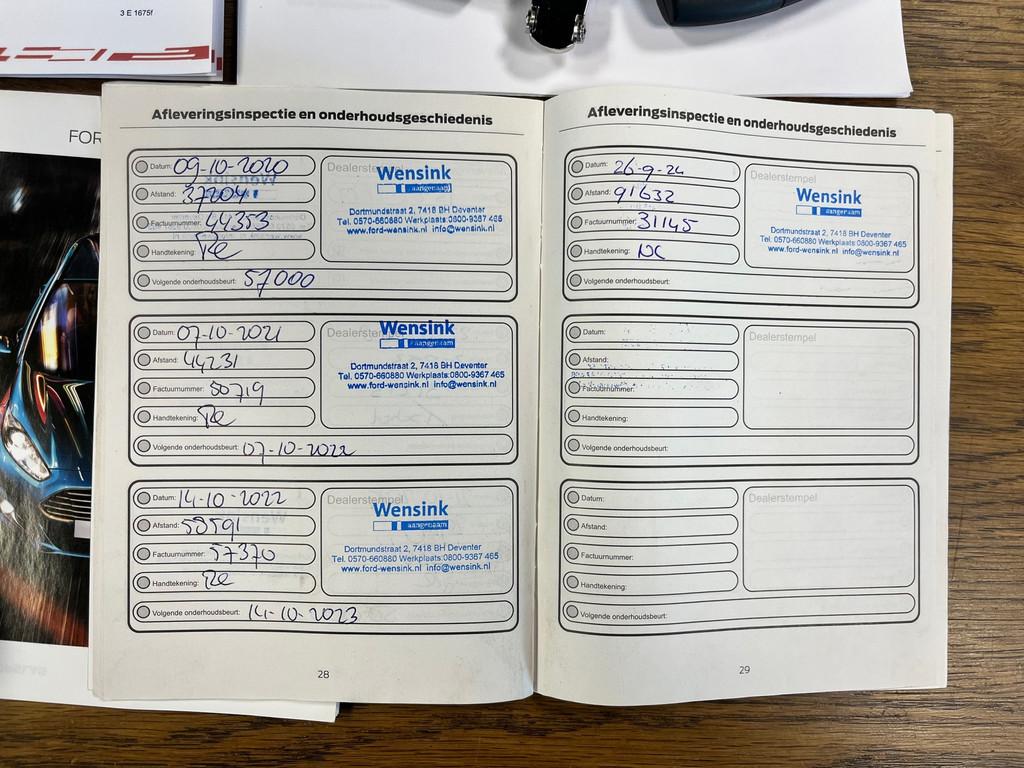 3 E 1675f
FOR
Afleveringsinspectie en onderhoudsgeschiedenis
Datum: 09-10-2020
Afstand: 37204
Factuurnummer: 44353
Handtekening: Re
Volgende onderhoudsbeurt: 57000
Dealerstempel
Wensink
aangenaam
Dortmundstraat 2, 7418 BH Deventer
Tel. 0570-660880 Werkplaats:0800-9367 465
www.ford-wensink.nl info@wensink.nl
Datum: 07-10-2021
Afstand: 44231
Factuurnummer: 50719
Handtekening: Re
Volgende onderhoudsbeurt: 07-10-2022
Dealerstempel
Wensink
aangenaam
Dortmundstraat 2, 7418 BH Deventer
Tel. 0570-660880 Werkplaats:0800-9367 465
www.ford-wensink.nl info@wensink.nl
Datum: 14-10-2022
Afstand: 58591
Factuurnummer: 57370
Handtekening: Re
Volgende onderhoudsbeurt: 14-10-2023
Dealerstempel
Wensink
aangenaam
Dortmundstraat 2, 7418 BH Deventer
Tel. 0570-660880 Werkplaats:0800-9367 465
www.ford-wensink.nl info@wensink.nl
28
Afleveringsinspectie en onderhoudsgeschiedenis
Datum: 26-9-24
Afstand: 91632
Factuurnummer: 31145
Handtekening:
Volgende onderhoudsbeurt:
Dealerstempel
Wensink
aangenaam
Dortmundstraat 2, 7418 BH Deventer
Tel. 0570-660880 Werkplaats:0800-9367 465
www.ford-wensink.nl info@wensink.nl
Datum:
Afstand:
Factuurnummer:
Handtekening:
Volgende onderhoudsbeurt:
Dealerstempel
Datum:
Afstand:
Factuurnummer:
Handtekening:
Volgende onderhoudsbeurt:
Dealerstempel
29